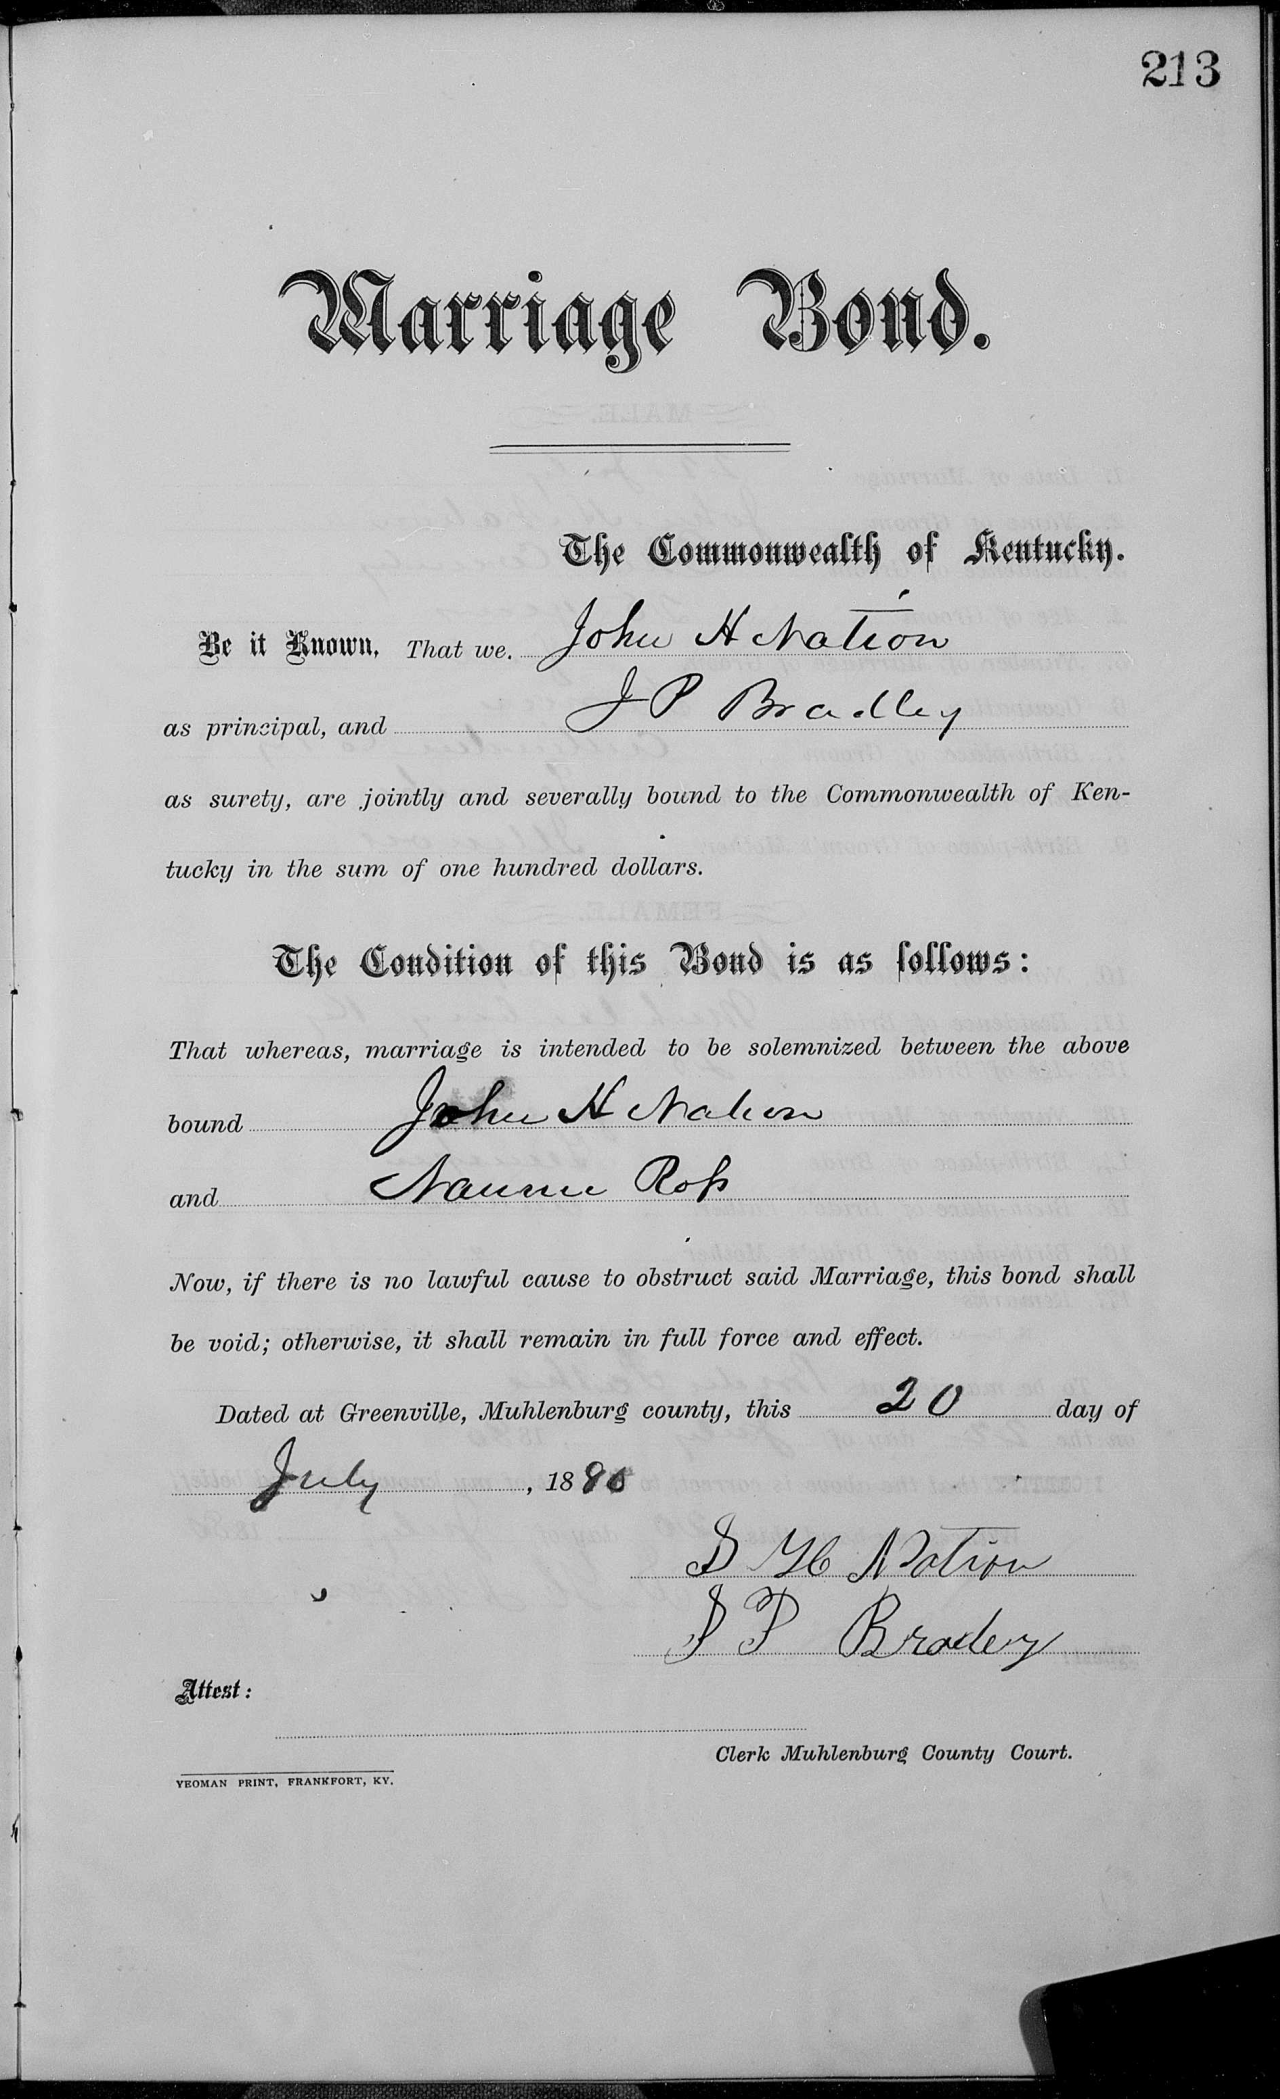 213
Marriage Bond.
The Commonwealth of Kentucky.
Be it Known, That we. John H Nation
as principal, and J P Bradley
as surety, are jointly and severally bound to the Commonwealth of Ken-
tucky in the sum of one hundred dollars.
The Condition of this Bond is as follows:
That whereas, marriage is intended to be solemnized between the above
bound John H Nation
and Nannie Ross
Now, if there is no lawful cause to obstruct said Marriage, this bond shall
be void; otherwise, it shall remain in full force and effect.
Dated at Greenville, Muhlenburg county, this 20 day of
July, 1880
J H Nation
J P Bradley
Attest:
Clerk Muhlenburg County Court.
YEOMAN PRINT, FRANKFORT, KY.